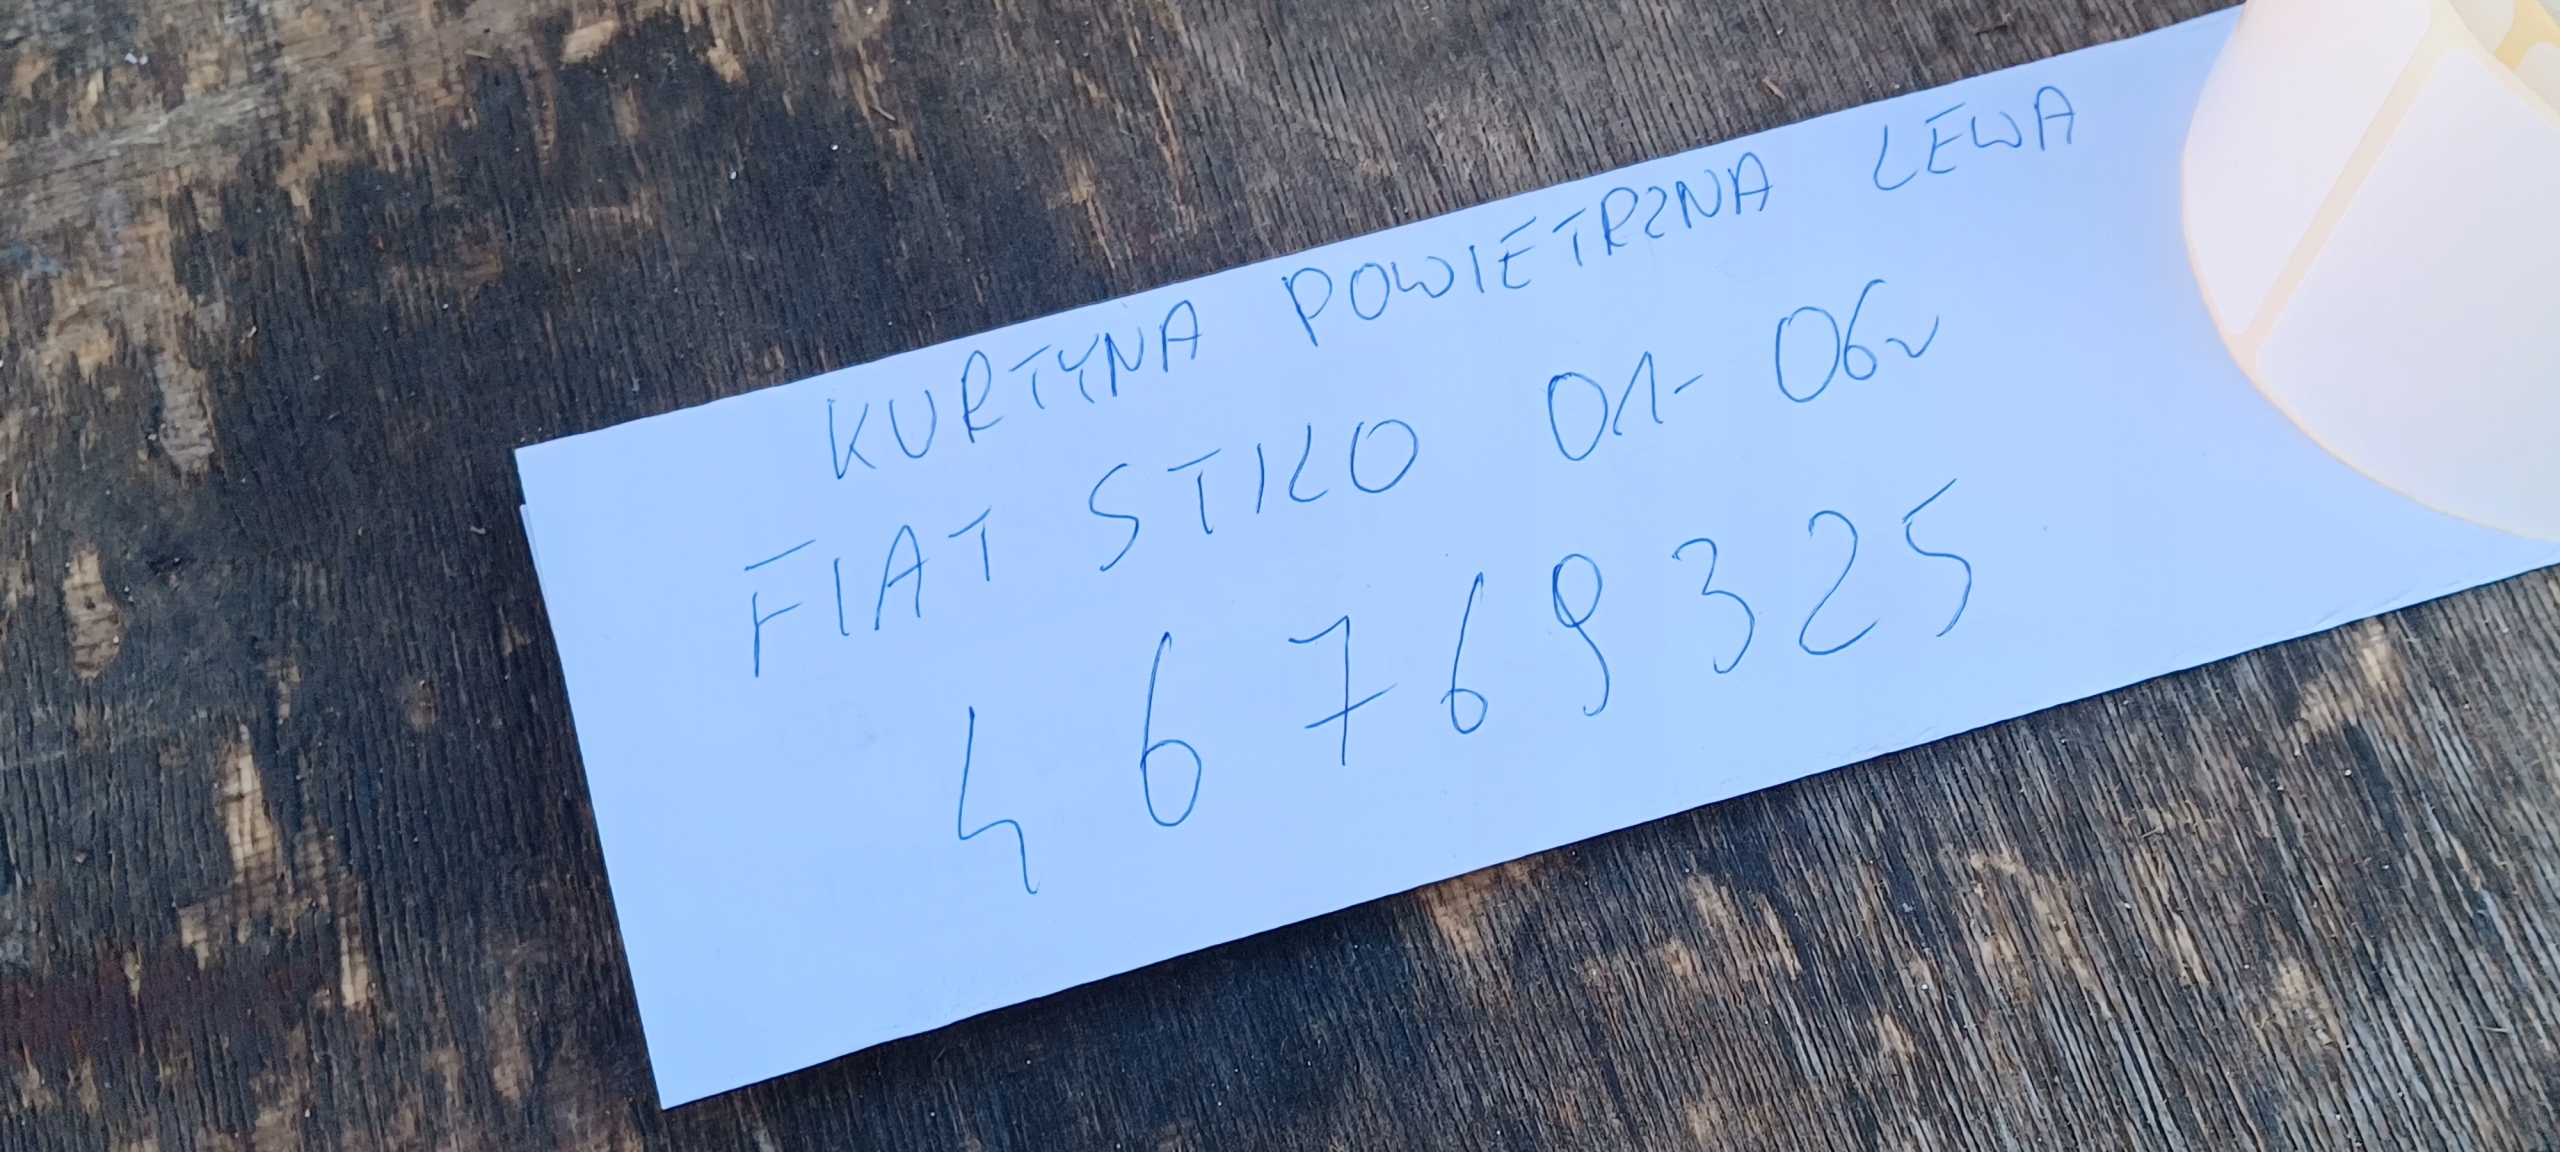 KURTYNA POWIETRZNA LEWA
FIAT STILO 01-06r
46769325